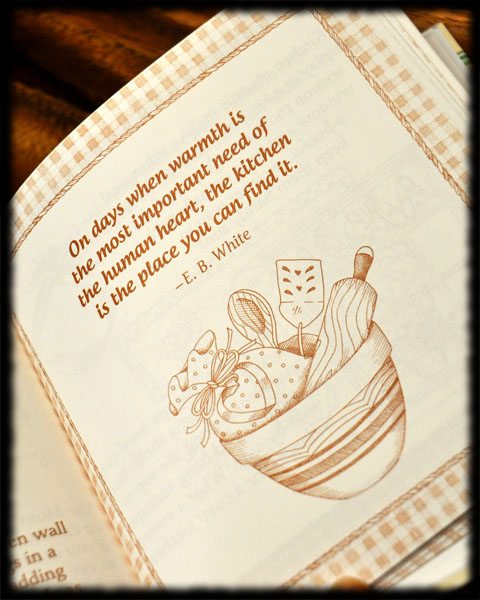 On days when warmth is
the most important need of
the human heart, the kitchen
is the place you can find it.
–E. B. White
en wall
gs in a
dding